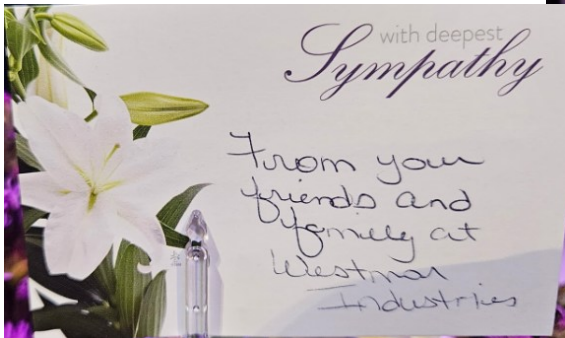 with deepest
Sympathy
From your
friends and
family at
Westman
Industries